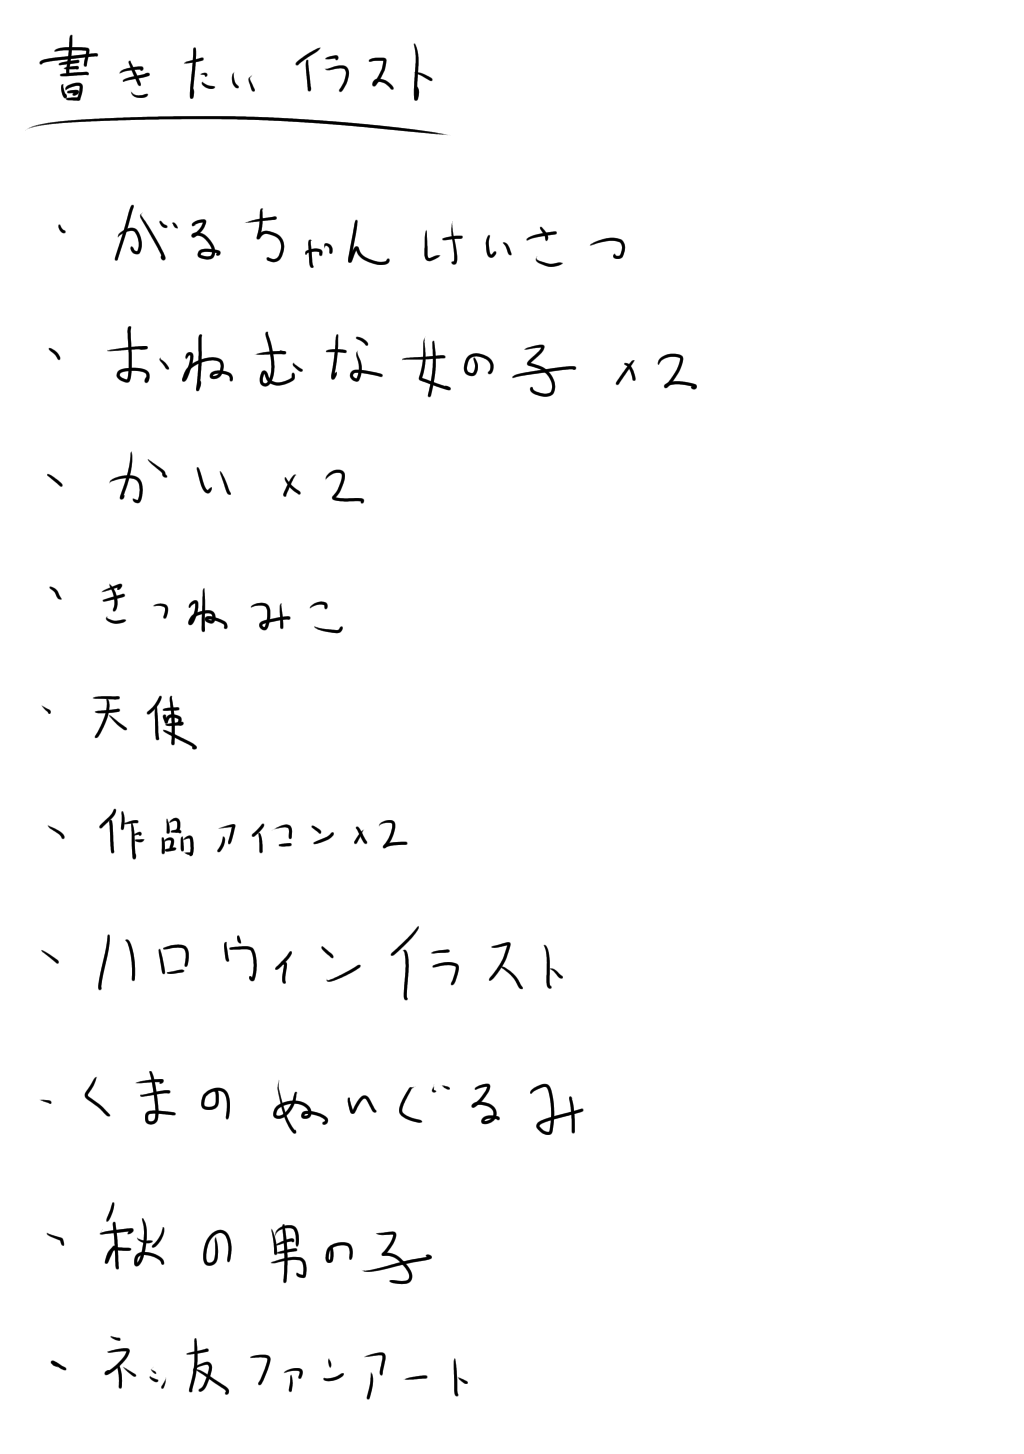 書きたいイラスト
・がるちゃんけいさつ
・おねむな女の子×2
・かい×2
・きつねみこ
・天使
・作品アイコン×2
・ハロウィンイラスト
・くまのぬいぐるみ
・秋の男の子
・ネッ友ファンアート